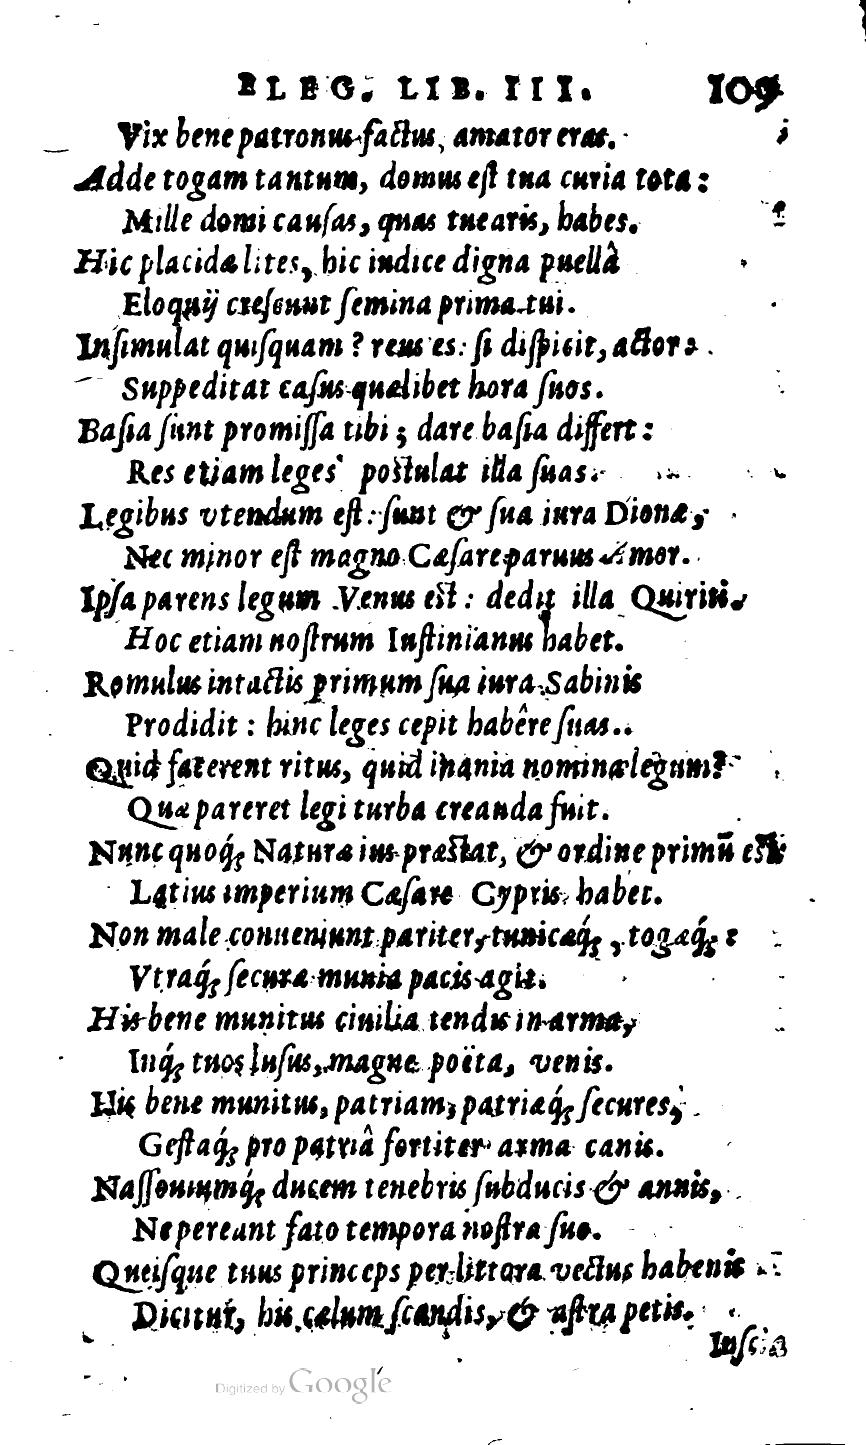 ELEG. LIB. III. 109
Vix bene patronus factus, amator eras.
Adde togam tantum, domus est tua curia tota:
Mille domi causas, quas tuearis, habes.
Hic placidæ lites, hic iudice digna puellâ
Eloquij crescunt semina prima tui.
Insimulat quisquam? reus es: si dispicit, actor:
Suppeditat casus quælibet hora suos.
Basia sunt promissa tibi; dare basia differt:
Res etiam leges postulat illa suas.
Legibus vtendum est: sunt & sua iura Dionæ,
Nec minor est magno Cæsare paruus Amor.
Ipsa parens legum Venus est: dedit illa Quiriti.
Hoc etiam nostrum Iustinianus habet.
Romulus intactis primum sua iura Sabinis
Prodidit: hinc leges cepit habêre suas.
Quid facerent ritus, quid inania nomina legum?
Quæ pareret legi turba creanda fuit.
Nunc quoq́; Naturæ ius præstat, & ordine primũ est:
Latius imperium Cæsare Cypris habet.
Non male conueniunt pariter, tunicæq́;, togæq́;:
Vtraq́; securæ munia pacis agit.
His bene munitus ciuilia tendis in arma,
Inq́; tuos lusus, magne poëta, venis.
His bene munitus, patriam, patriæq́; secures,
Gestaq́; pro patriâ fortiter arma canis.
Nassouiumq́; ducem tenebris subducis & annis,
Ne pereant fato tempora nostra suo.
Queisque tuus princeps per littora vectus habenis
Dicitur, his cælum scandis, & astra petis.
Inscia
Digitized by Google